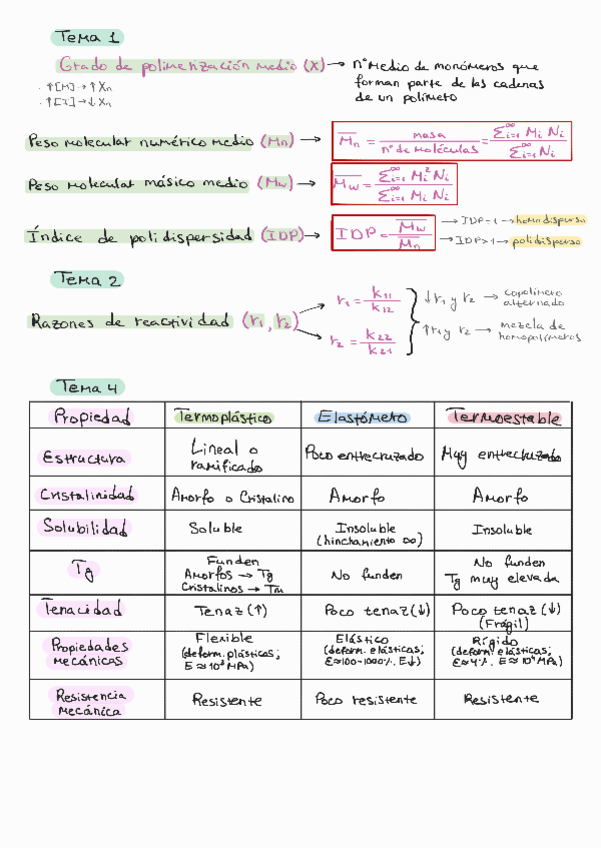 Tema 1
Grado de polimerización medio (X) → nº medio de monómeros que
forman parte de las cadenas
de un polímero
· ↑[M] → ↑Xn
· ↑[I] → ↓Xn
Peso molecular numérico medio (Mn) → M̅n = masa / nº de moléculas = Σ∞i=1 Mi Ni / Σ∞i=1 Ni
Peso molecular másico medio (Mw) → M̅w = Σ∞i=1 Mi² Ni / Σ∞i=1 Mi Ni
Índice de polidispersidad (IDP) → IDP = M̅w / M̅n
→ IDP=1 → homodisperso
→ IDP>1 → polidisperso
Tema 2
Razones de reactividad (r1, r2)
r1 = k11 / k12
r2 = k22 / k21
↓r1 y r2 → copolímero alternado
↑r1 y r2 → mezcla de homopolímeros
Tema 4
Propiedad Termoplástico Elastómero Termoestable
Estructura Lineal o ramificado Poco entrecruzado Muy entrecruzado
Cristalinidad Amorfo o Cristalino Amorfo Amorfo
Solubilidad Soluble Insoluble (hinchamiento ∞) Insoluble
Tg Funden Amorfos → Tg Cristalinos → Tm No funden No funden Tg muy elevada
Tenacidad Tenaz (↑) Poco tenaz (↓) Poco tenaz (↓) (Frágil)
Propiedades mecánicas Flexible (deform. plásticas; E≈10³ MPa) Elástico (deform. elásticas; ε≈100-1000%. E↓) Rígido (deform. elásticas; ε≈4%. E≈10⁴ MPa)
Resistencia mecánica Resistente Poco resistente Resistente